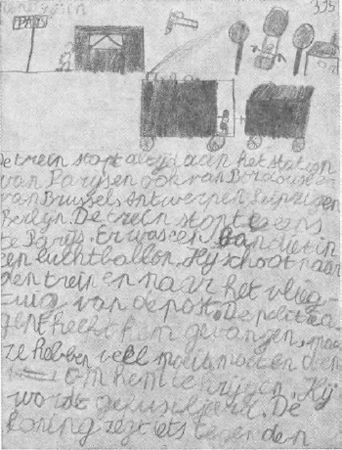 395
PARIS
De trein stopt altijd aan het station
van Parijs en ook van Bordeus en
van Brussel, Antwerpen, Leipzig en
Berlyn. De trein stopt te eens
te Parijs. Er was een bandiet in
een luchtballon. Hij schoot naar
den trein en naar het vlieg-
tuig van de post. De polit ea
gent heeft hem gevangen, maar
ze hebben veel moeite moeten doen
om hem te krijgen. Hij
wordt gefusiljeerd. De
koning zegt iets tegen den